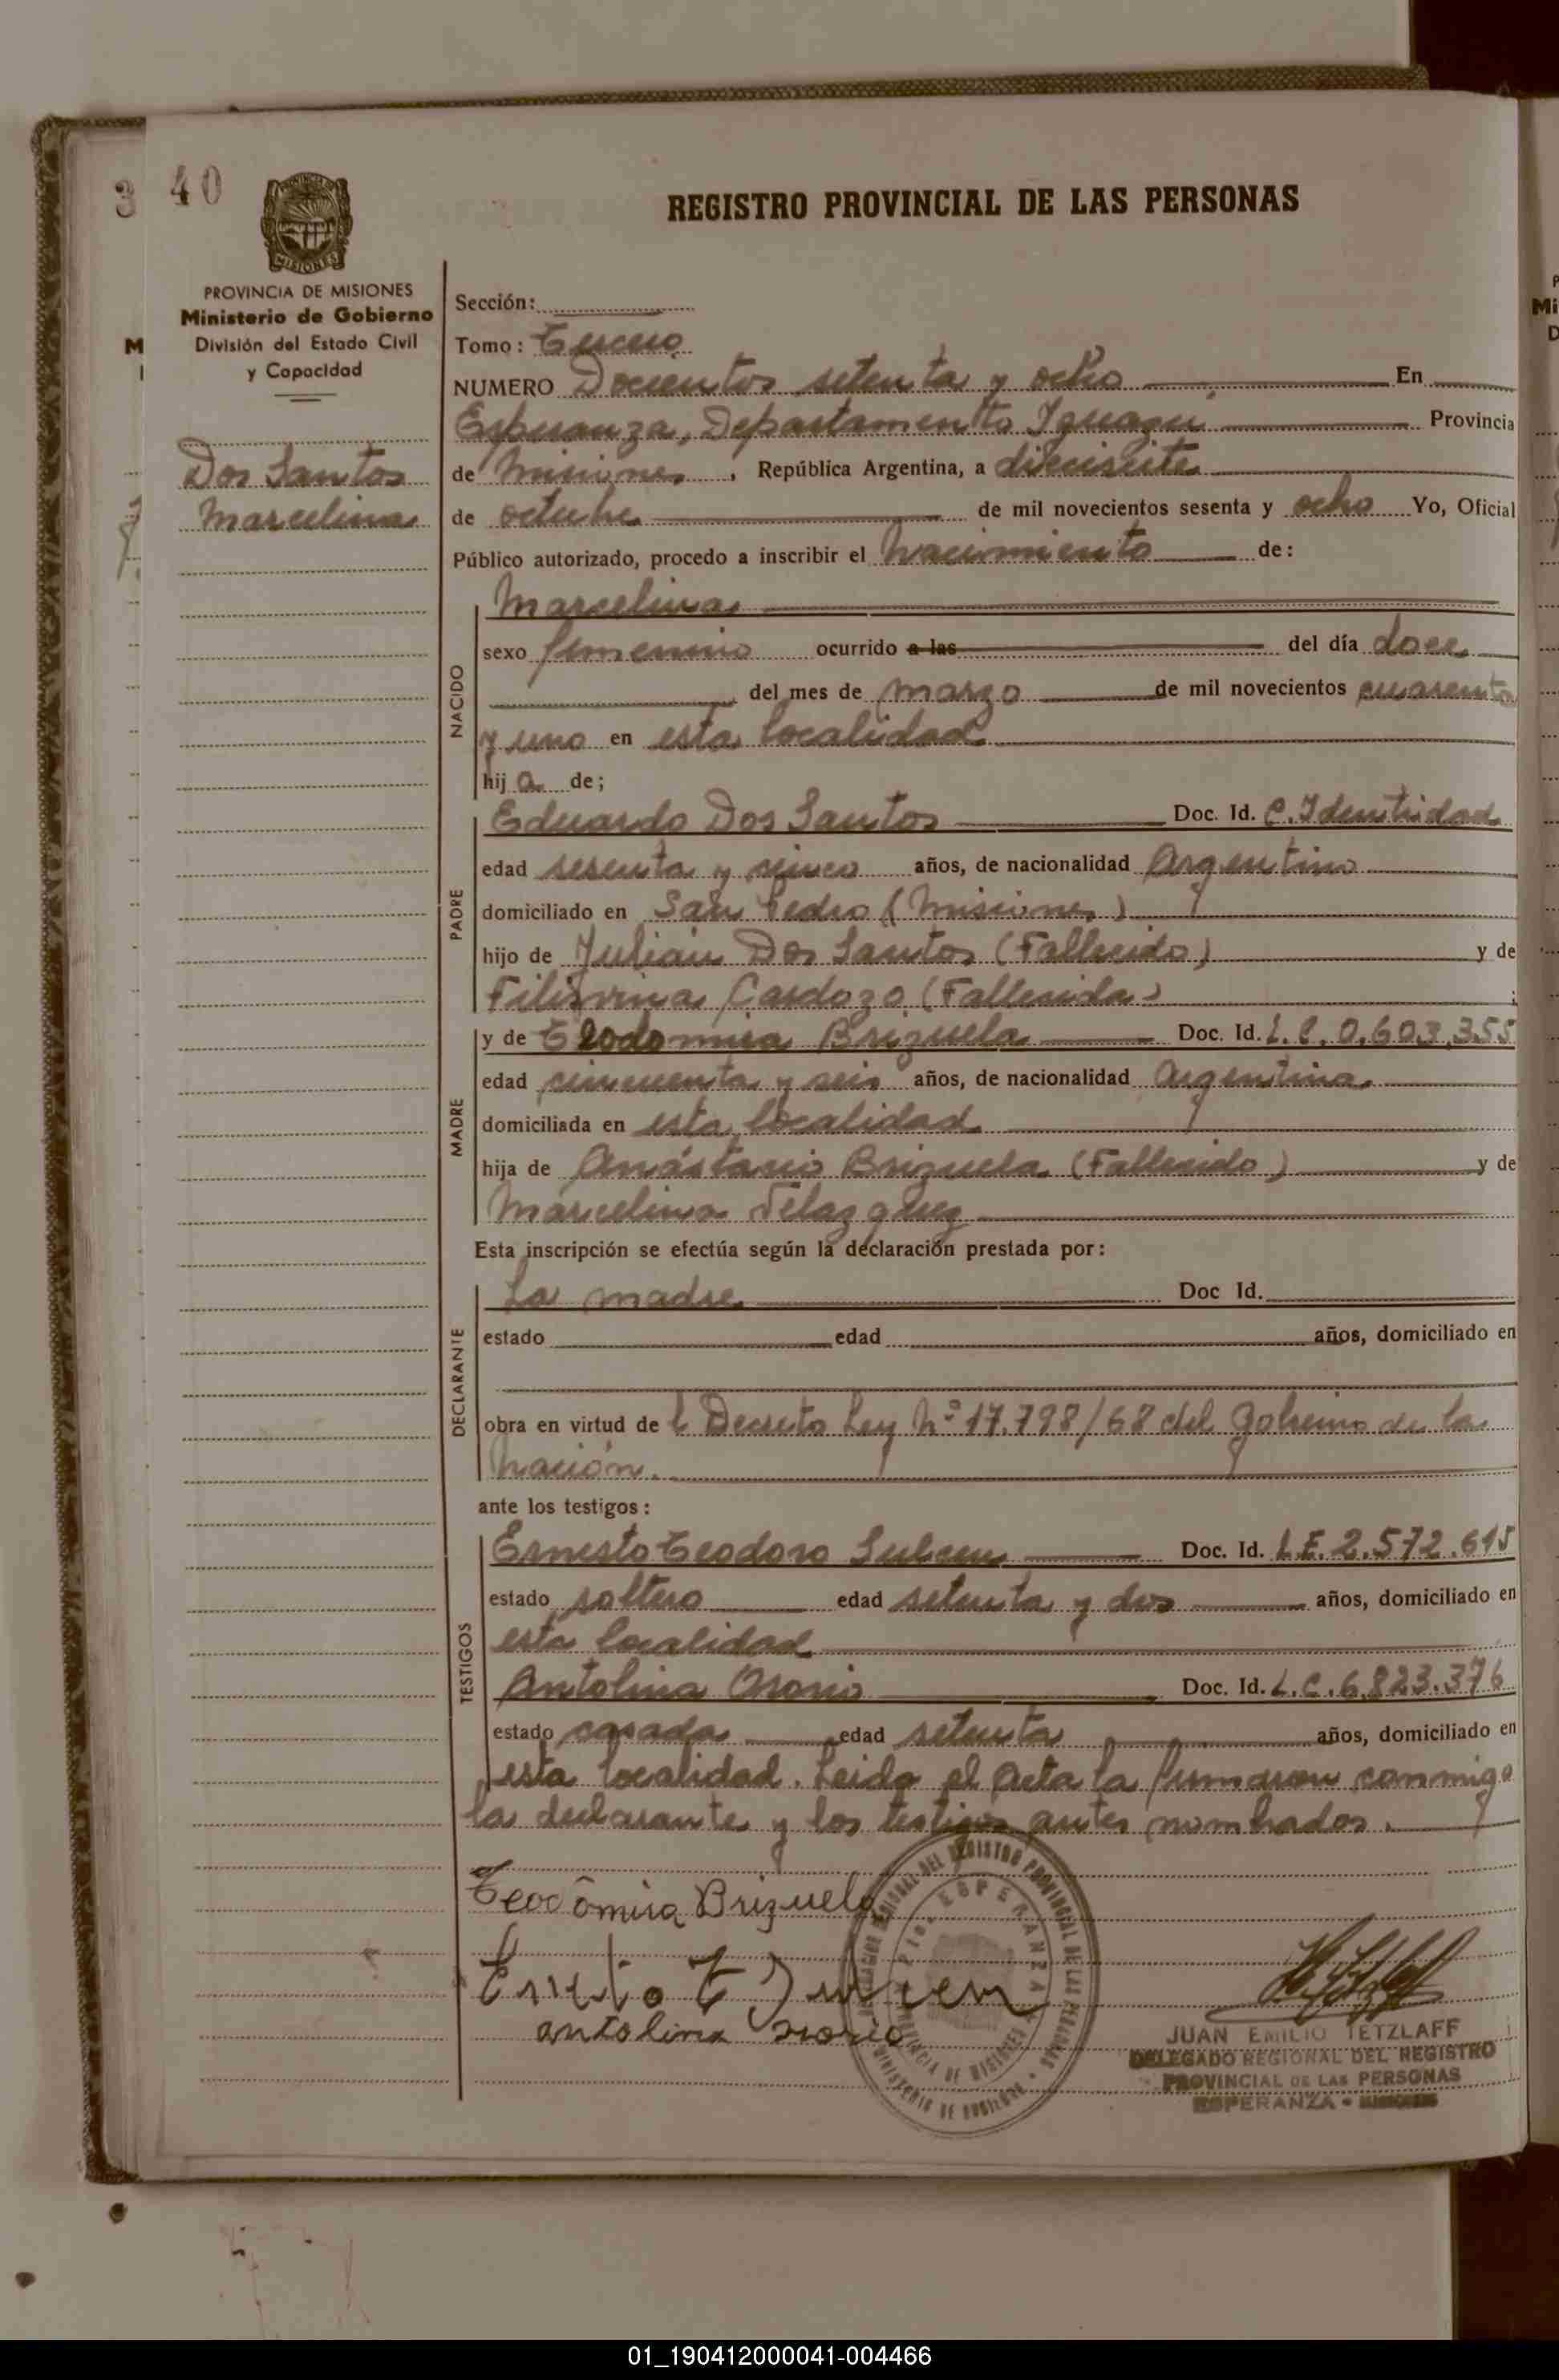 3 40
REGISTRO PROVINCIAL DE LAS PERSONAS
MISIONES
PROVINCIA DE MISIONES
Ministerio de Gobierno
División del Estado Civil
y Capacidad
Dos Santos
Marcelina
Sección:
Tomo: Tercero
NUMERO Docientos setenta y ocho En
Esperanza, Departamento Iguazú Provincia
de Misiones, República Argentina, a diecisiete
de octubre de mil novecientos sesenta y ocho Yo, Oficial
Público autorizado, procedo a inscribir el nacimiento de:
NACIDO
Marcelina
sexo femenino ocurrido a las del día doce
del mes de marzo de mil novecientos cuarenta
y uno en esta localidad
hij a de;
PADRE
Eduardo Dos Santos Doc. Id. C. Identidad
edad sesenta y cinco años, de nacionalidad Argentino
domiciliado en San Pedro (Misiones)
hijo de Julián Dos Santos (Fallecido) y de
Cardozo (Fallecida)
MADRE
y de Brizuela Doc. Id. L.C. 0.603.355
edad cincuenta y seis años, de nacionalidad Argentina
domiciliada en esta localidad
hija de Anástacio Brizuela (Fallecido) y de
Marcelina Velazquez
Esta inscripción se efectúa según la declaración prestada por:
DECLARANTE
La madre Doc Id.
estado edad años, domiciliado en
obra en virtud de l Decreto Ley Nº 17.798/68 del Gobierno de la
Nación.
ante los testigos:
TESTIGOS
Ernesto Teodoro Doc. Id. L.E. 2.572.615
estado soltero edad setenta y dos años, domiciliado en
esta localidad
Antolina Osorio Doc. Id. L.C. 6.823.376
estado casada edad setenta años, domiciliado en
esta localidad. Leida el Acta la firmaron conmigo
la declarante y los testigos antes nombrados.
Brizuela
antolina
JUAN EMILIO TETZLAFF
DELEGADO REGIONAL DEL REGISTRO
PROVINCIAL DE LAS PERSONAS
ESPERANZA - MISIONES
01_190412000041-004466